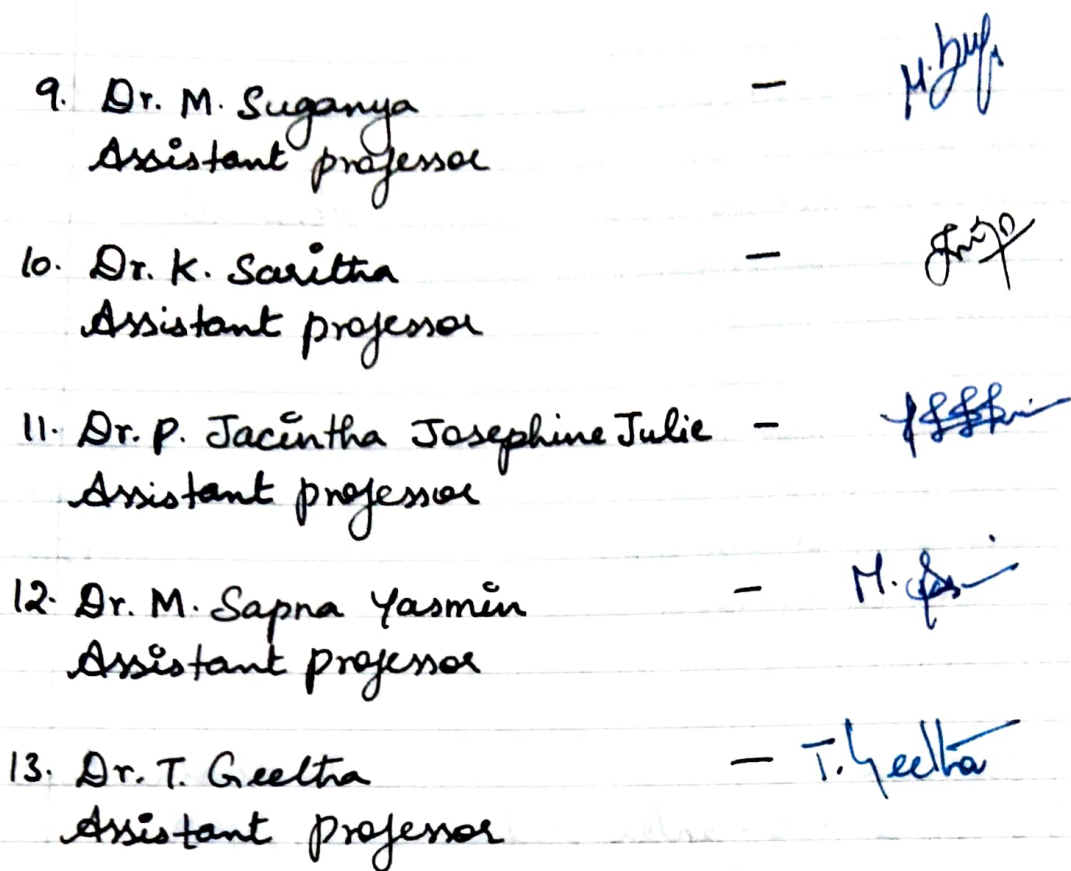 9. Dr. M. Suganya -
Assistant professor
10. Dr. K. Saritha -
Assistant professor
11. Dr. P. Jacintha Josephine Julie -
Assistant professor
12. Dr. M. Sapna Yasmin - M.
Assistant professor
13. Dr. T. Geetha - T. Geetha
Assistant professor